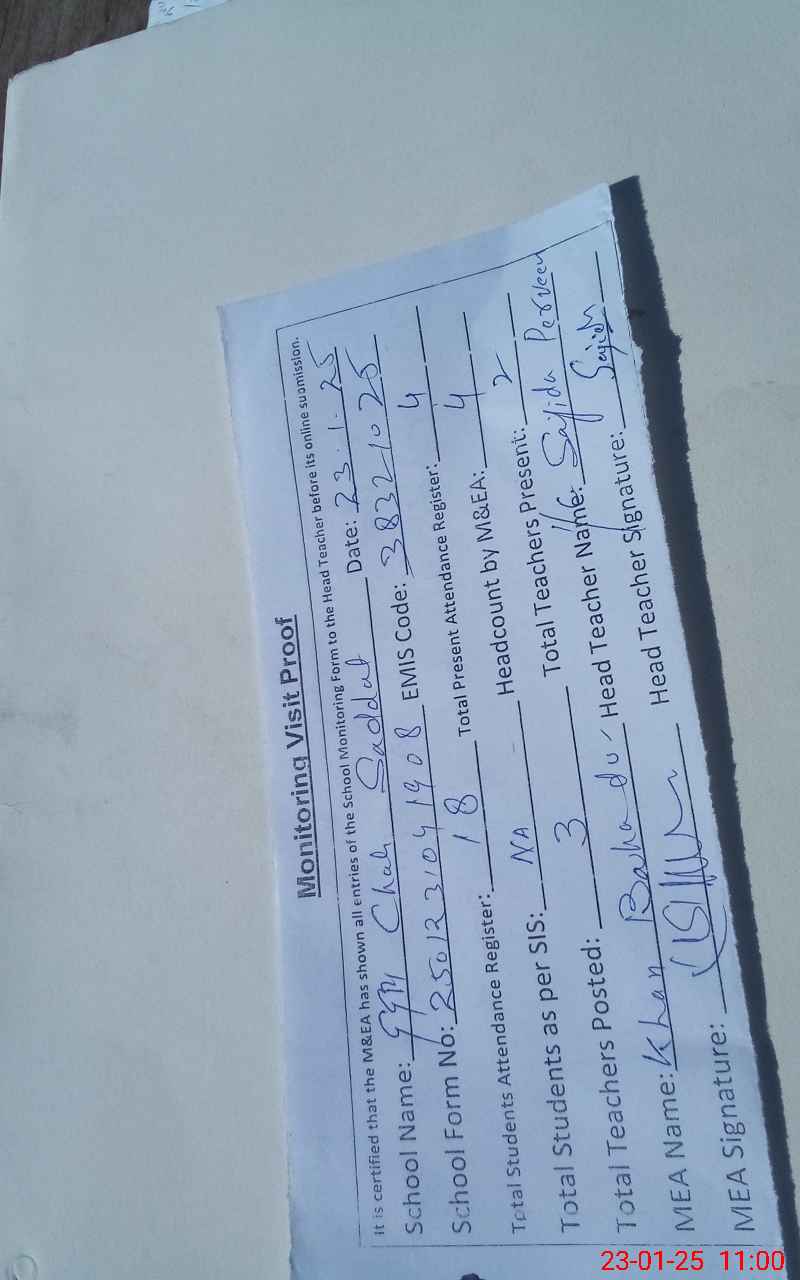 Monitoring Visit Proof
It is certified that the M&EA has shown all entries of the School Monitoring Form to the Head Teacher before its online submission.
School Name: Chah Saddat Date: 23.1.25
School Form No: 2501231041908 EMIS Code: 38321025
Total Students Attendance Register: 18 Total Present Attendance Register: 4
Total Students as per SIS: NA Headcount by M&EA: 4
Total Teachers Posted: 3 Total Teachers Present: 2
MEA Name: Khan Bahadur Head Teacher Name: Sajida Perveen
MEA Signature: Head Teacher Signature: Sajida
23-01-25 11:00